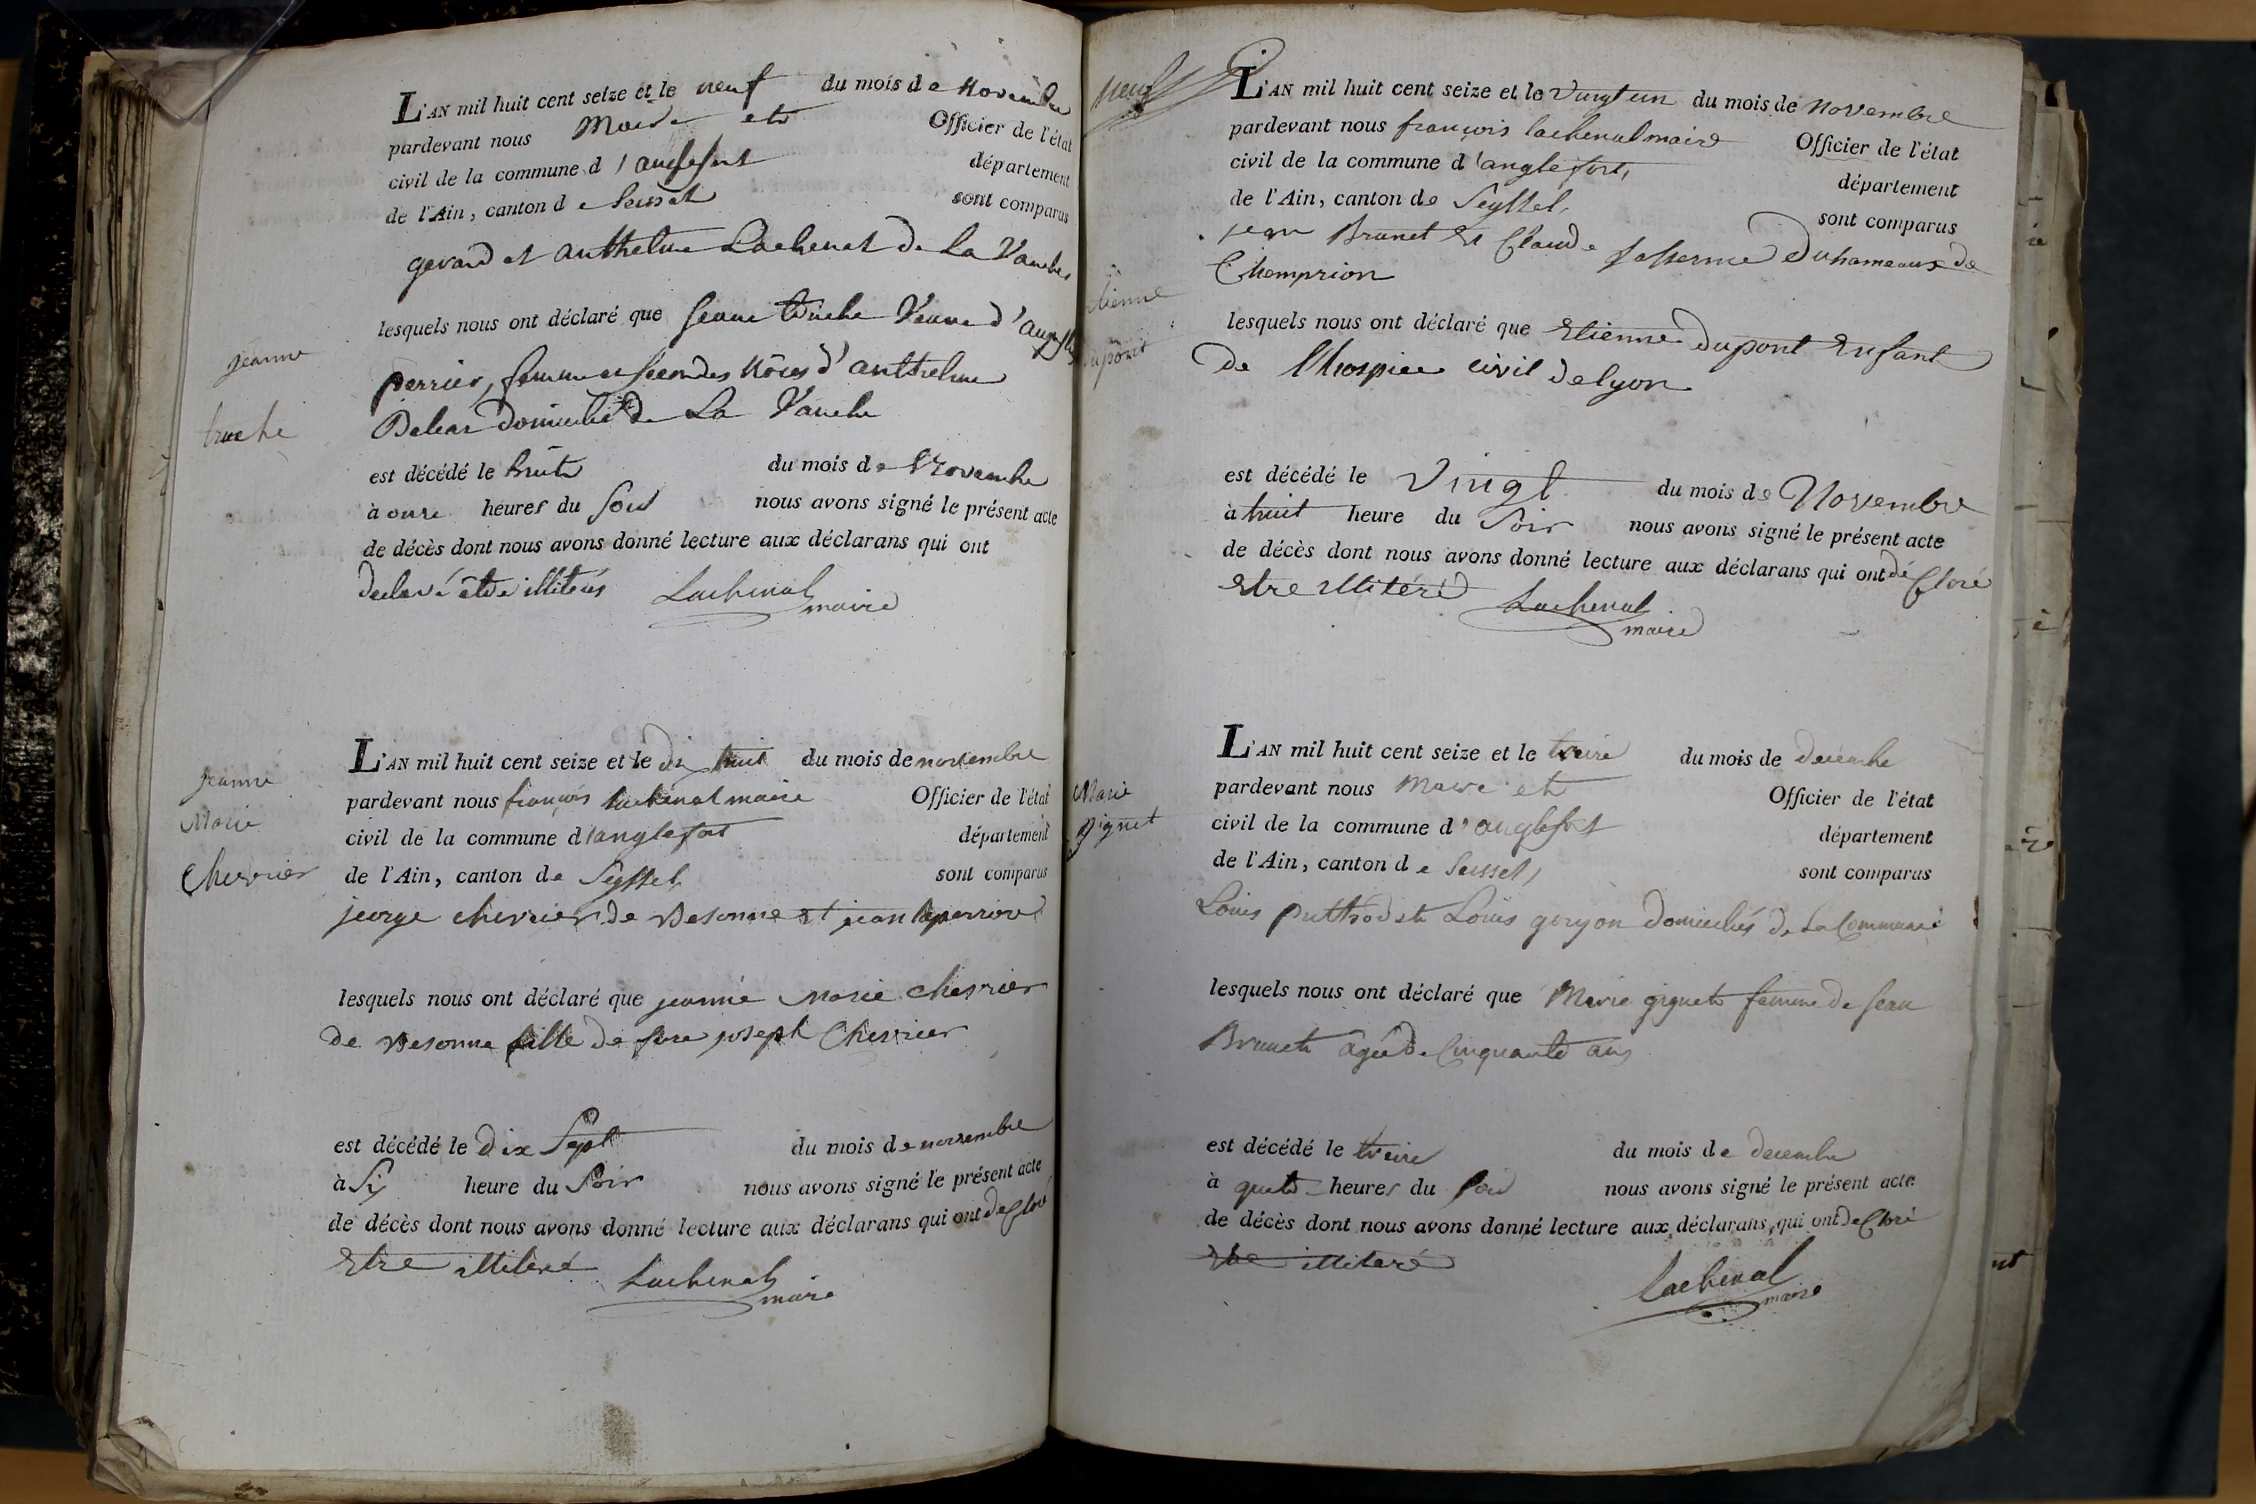 L'AN mil huit cent seize et le neuf du mois de Novembre
pardevant nous Maire et Officier de l'état
civil de la commune d'anglefort département
de l'Ain, canton de Seissel sont comparus
gerard et anthelme Lachenal de La Vanche
lesquels nous ont déclaré que Jeanne truche Veuve d'
perrier, femme en secondes Nôces d'anthelme
domicilié de La Vanche
Jeanne
truche
est décédé le huit du mois de Novembre
à onze heures du soir nous avons signé le présent acte
de décès dont nous avons donné lecture aux déclarans qui ont
declaré être illiterés Lachenal
maire
L'AN mil huit cent seize et le dix huit du mois de novembre
pardevant nous françois lachenal maire Officier de l'état
civil de la commune d'anglefort département
de l'Ain, canton de Seyssel sont comparus
jeorge chevrier de Desonne et jean
jeanne
Marie
Chevrier
lesquels nous ont déclaré que jeanne Marie chevrier
de Desonne fille de joseph Chevrier
est décédé le dix Sept du mois de novembre
à Six heure du Soir nous avons signé le présent acte
de décès dont nous avons donné lecture aux déclarans qui ont decloré
Etre illiteré Lachenal
maire
neuf
L'AN mil huit cent seize et le Vingt un du mois de Novembre
pardevant nous françois lachenal maire Officier de l'état
civil de la commune d'anglefort, département
de l'Ain, canton de Seyssel, sont comparus
jean Brunet Et Claude du hameaux de
Chemprion
etienne
dupont
lesquels nous ont déclaré que Etienne dupont Enfant
de l'hospice civil de lyon
est décédé le Vingt du mois de Novembre
à huit heure du Soir nous avons signé le présent acte
de décès dont nous avons donné lecture aux déclarans qui ont décloré
Etre illitéré Lachenal
maire
L'AN mil huit cent seize et le treize du mois de decembre
pardevant nous Maire et Officier de l'état
civil de la commune d'anglefort département
de l'Ain, canton de Seissel, sont comparus
Louis puthod et Louis goryon domiciliés de La Commune
Marie
gignet
lesquels nous ont déclaré que Marie gignet femme de Jean
Brunet agée de Cinquante ans
est décédé le treize du mois de decembre
à heures du soir nous avons signé le présent acte
de décès dont nous avons donné lecture aux déclarans qui ont decloré
Etre illiteré
Lachenal
maire